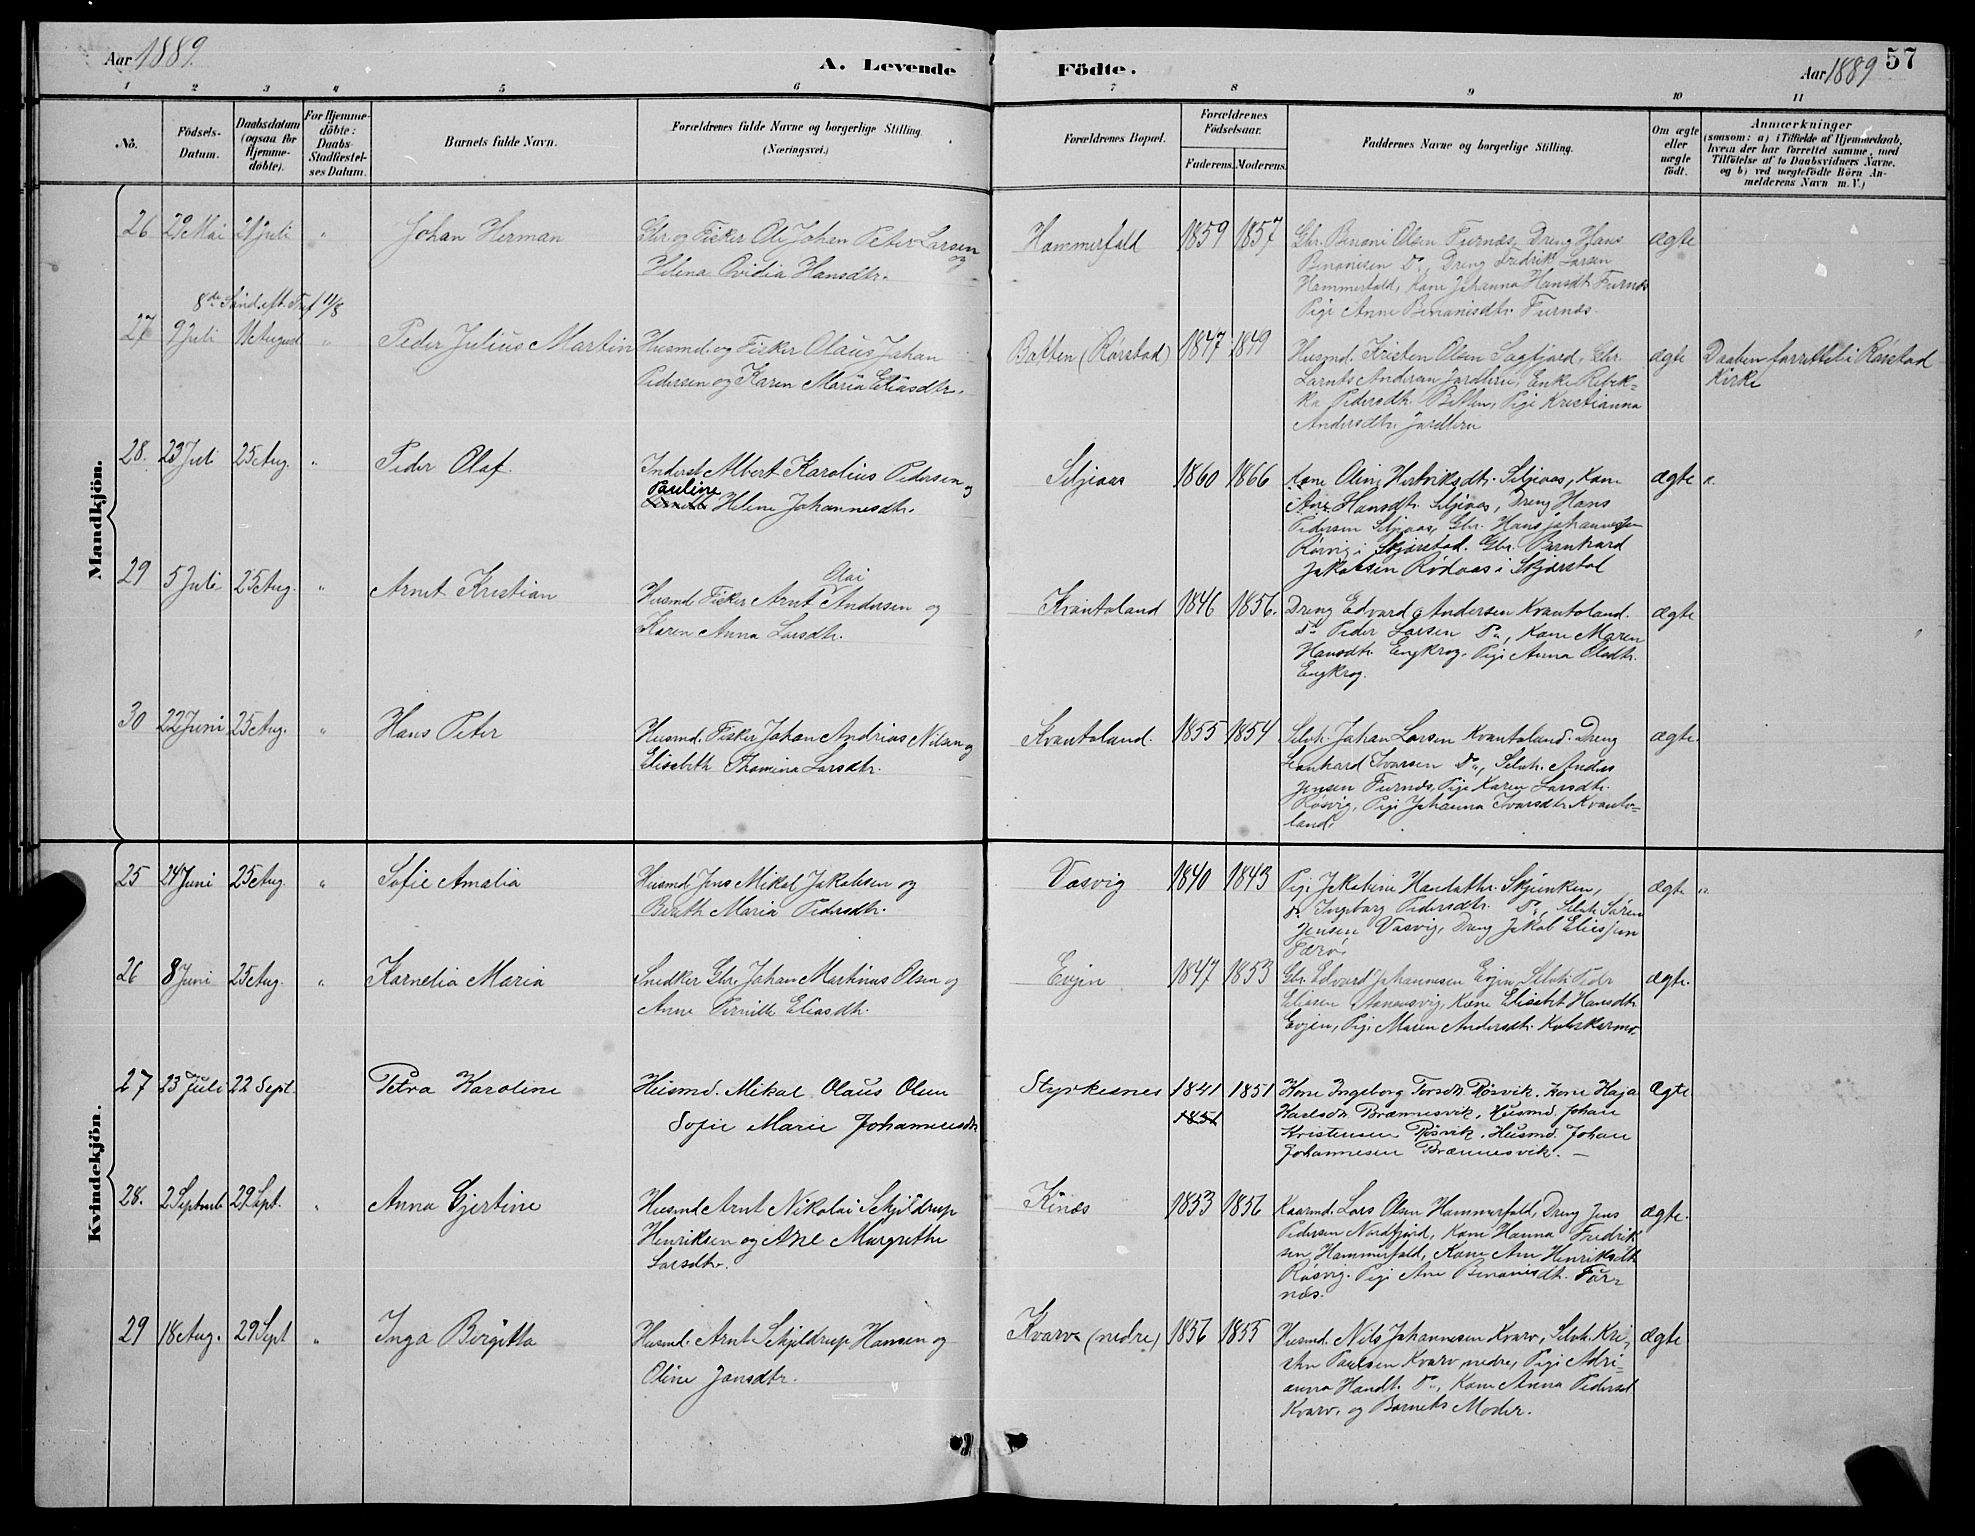 Aar 1889.
A. Levende Födte.
Aar 1889
57
1 2 3 4 5 6 7 8 9 10 11
No.
Födsels-
Datum.
Daabsdatum
(ogsaa for
Hjemme-
döbte).
For Hjemme-
döbte:
Daabs-
Stadfæstel-
ses Datum.
Barnets fulde Navn.
Forældrenes fulde Navne og borgerlige Stilling.
(Næringsvei.)
Forældrenes Bopæl.
Forældrenes
Födselsaar.
Faderens. Moderens.
Faddernes Navne og borgerlige Stilling.
Om ægte
eller
uægte
födt.
Anmærkninger
(saasom: a) i Tilfælde af Hjemmedaab,
hvem der har forrettet samme, med
Tilföielse af to Daabsvidners Navne,
og b) ved uægtefödte Börn An-
melderens Navn m. V.)
Mandkjön.
26 29 Mai 21 Juli " Johan Herman
Gbr. og Fisker Ole Johan Peter Larsen
og
Helena Ovidia Hansdtr.
Hammerfald 1859 1857
Gbr. Benoni Olsen Furnæs, Dreng Hans
Benonisen Do., Dreng Fredrik Larsen
Hammerfald, Kone Johanna Hansdt. Furnæs
Pige Anne Benonisdtr. Furnæs.
ægte
8de Sønd. e. Tref 11/8
27 9 Juli 11 August " Peder Julius Martin
Husmd. og Fisker Olaus Johan
Pedersen og Karen Maria Eliasdtr.
Batten (Rørstad) 1847 1849
Husmd. Kristen Olsen Sagfjord, Gbr.
Larnts Andersen Jordbru, Enke Rebek-
ka Pedersdtr. Batten, Pige Kristianna
Andersdtr. Jordbru
ægte
Daaben forrettet i Rørstad
Kirke
28. 23 Juli 25 Aug. " Peder Olaf.
Inderst Albert Karolius Pedersen og
Pauline
Helene Johannesdtr.
Siljaas 1860 1866
Kone Oline Henriksdtr. Siljaas, Kone
Ane Hansdtr. Siljaas, Dreng Hans
Pedersen Siljaas, Gbr. Hans Johannessen
Røsvig i Skjerstad. Gbr. Bernhard
Jakobsen Rødaas i Skjerstad
ægte "
29 5 Juli 25 Aug. " Arnt Kristian
Olai
Husmd. Fisker Arnt Andersen og
Karen Anna Larsdtr.
Kvantoland 1846 1856.
Dreng Edvard Andersen Kvantoland.
do Peder Larsen Do., Kone Maren
Hansdtr. Engkrog. Pige Anna Olsdtr.
Engkrog.
ægte
30 22 Juni 25 Aug. " Hans Peter
Husmd. Fisker Johan Andrias Nilsen og
Elisabeth Thomina Larsdtr.
Kvantoland. 1855 1854
Selvh. Johan Larsen Kvantoland. Dreng
Leonhard Ivarsen Do., Selvh. Anders
Jensen Furnæs, Pige Karen Larsdtr.
Røsvig, Pige Johanna Ivarsdtr. Kvanto-
land.
ægte.
Kvindekjön.
25 24 Juni 25 Aug. " Sofie Amalia
Husmd. Jens Mikal Jakobsen og
Berith Maria Pedersdtr.
Vasvig 1840 1843
Pige Jakobine Skjunken,
do. Ingeborg Pedersdtr. Do., Selvh. Søren
Jensen Vasvig, Dreng Jakob Eliesen
Færø.
ægte "
26 8 Juni 25 Aug. " Karnelia Maria
Snedker Gbr. Johan Martinus Olsen og
Anne Pernille Eliasdtr.
Evjen 1847 1853
Gbr. Edvard Johannesen Evjen, Selvh. Peder
Eliasen, Kone Elisabet Hansdtr.
Evjen, Pige Maren Andersdtr. Kobskarmo
ægte.
27 23 Juli 22 Sept. Petra Karoline
Husmd. Mikal Olaus Olsen
Sofie Marie Johannesdtr
Styrkesnes 1841 1851
1851
Kone Ingeborg Torsdtr. Røsvik. Kone Kaja
Karlsdtr. Brænnesvik, Husmd. Johan
Kristensen Røsvik. Husmd. Johan
Johannesen Brænnesvik. —
Ægte.
28. 2 Septemb 29 Sept. " Anna Gjertine
Husmd. Arnt Nikolai Schjeldrup
Henriksen og Ane Margrethe
Larsdtr.
Kinæs 1853 1856
Kaarmd. Lars Olsen Hammerfald, Dreng Jens
Pedersen Nordfjord, Kone Hanna Fredrik
sen Hammerfald, Kone Ane Henriksdtr
Røsvig. Pige Ane Benonisdt. Fur-
næs.
ægte.
29 18 Aug. 29 Sept " Inga Birgitta
Husmd. Arnt Schjeldrup Hansen og
Oline Jansdtr.
Kvarv (nedre) 1856 1855
Husmd. Nils Johannesen Kvarv, Selvh. Kri-
sten Paulsen Kvarv nedre, Pige Adri-
anna Hansdt. Do., Kone Anna Pedersd
Kvarv, og Barnets Moder.
ægte